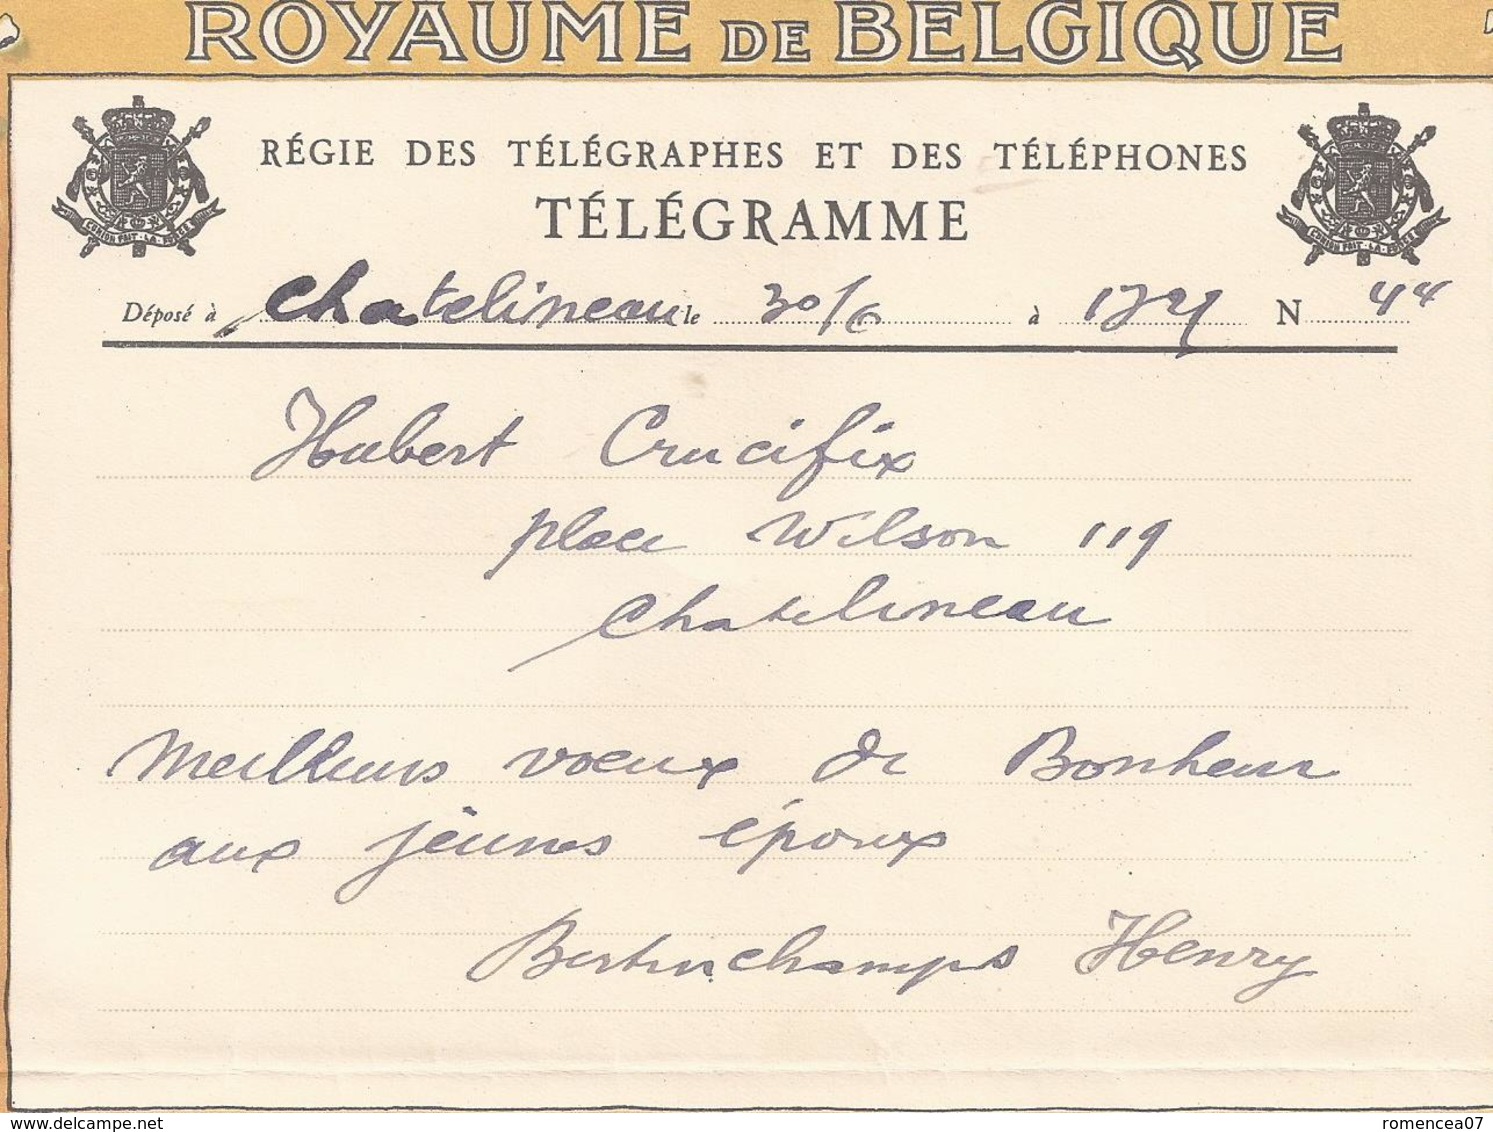 ROYAUME DE BELGIQUE
RÉGIE DES TÉLÉGRAPHES ET DES TÉLÉPHONES
TÉLÉGRAMME
Déposé à Chatelineau le 30/6 à N 44
Hubert Crucifix
place Wilson 119
Chatelineau
Meilleurs voeux de Bonheur
aux jeunes époux
Bertinchamps Henry
www.delcampe.net
romencea07